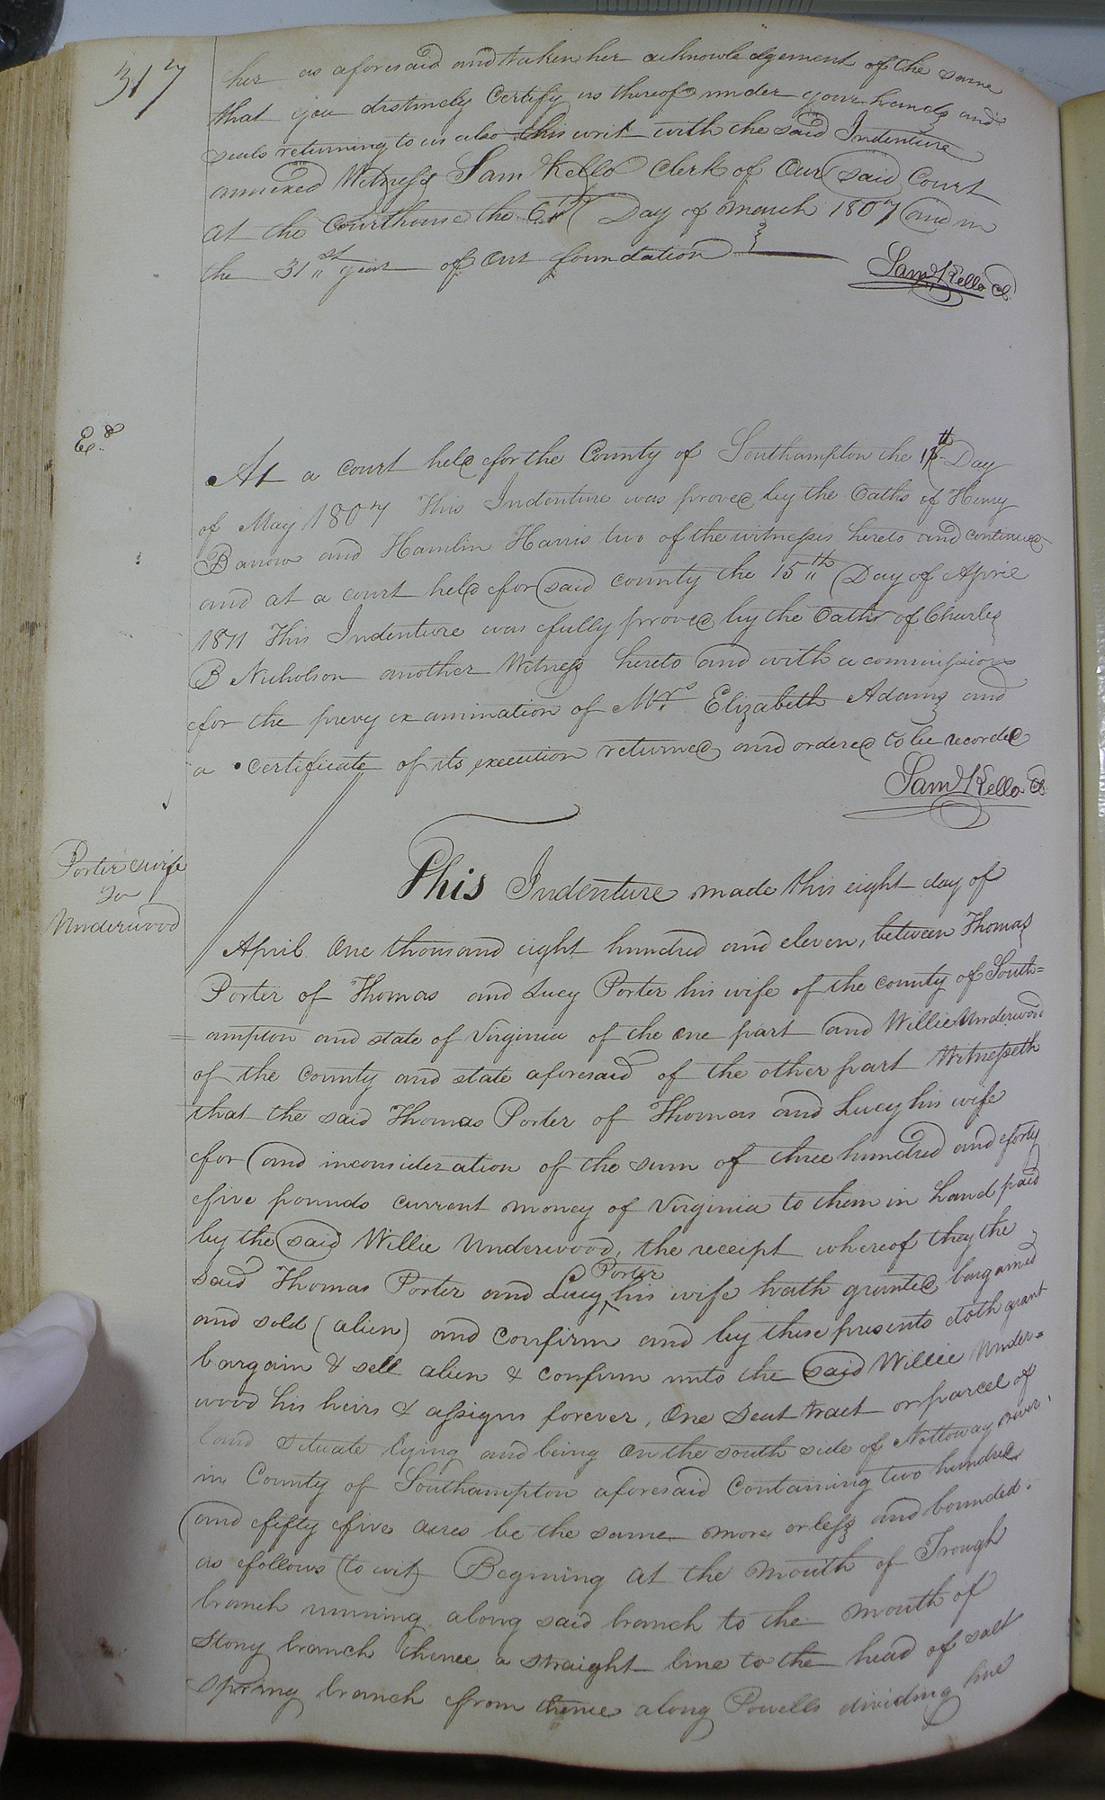 317
her as aforesaid and taken her acknowledgement of the same
that you distinctly Certify us thereof under your hands and
seals returning to us also this writ with the said Indenture
annexed Witness Sam Kello Clerk of Our said Court
at the Courthouse the 6th Day of March 1807 and in
the 31st year of Our foundation
Saml Kello Cl.
Exd
At a Court held for the County of Southampton the Day
of May 1807 This Indenture was proved by the Oaths of Henry
Barrow and Hamlin Harris two of the witnesses hereto and continued
and at a court held for said county the 15th Day of April
1811 This Indenture was fully proved by the Oaths of Charles
B Nicholson another Witness hereto and with a commission
for the prevy examination of Mrs. Elizabeth Adams and
a certificate of its execution returned and ordered to be recorded
Saml Kello Cl.
Porter & wife
To
Underwood
This Indenture made this eight day of
April One thousand eight hundred and eleven, between Thomas
Porter of Thomas and Lucy Porter his wife of the county of South=
=ampton and state of Virginia of the one part and Willie Underwood
of the County and state aforesaid of the other part Witnesseth
that the said Thomas Porter of Thomas and Lucy his wife
for and inconsideration of the sum of three hundred and forty
five pounds current money of Virginia to them in hand paid
by the said Willie Underwood, the receipt whereof they the
said Thomas Porter and Lucy ^Porter his wife hath granted bargained
and sold (alien) and confirm and by these presents doth grant
bargain & sell alien & confirm unto the said Willie Under=
wood his heirs & assigns forever, One Seat tract or parcel of
land situate lying and being On the south side of Nottoway river,
in County of Southampton aforesaid Containing two hundred
and fifty five acres be the same more or less and bounded.
as follows (to wit) Begining at the mouth of Trough
branch running along said branch to the mouth of
Stony branch thence a straight line to the head of salt
spring branch from thence along Powells dividing line